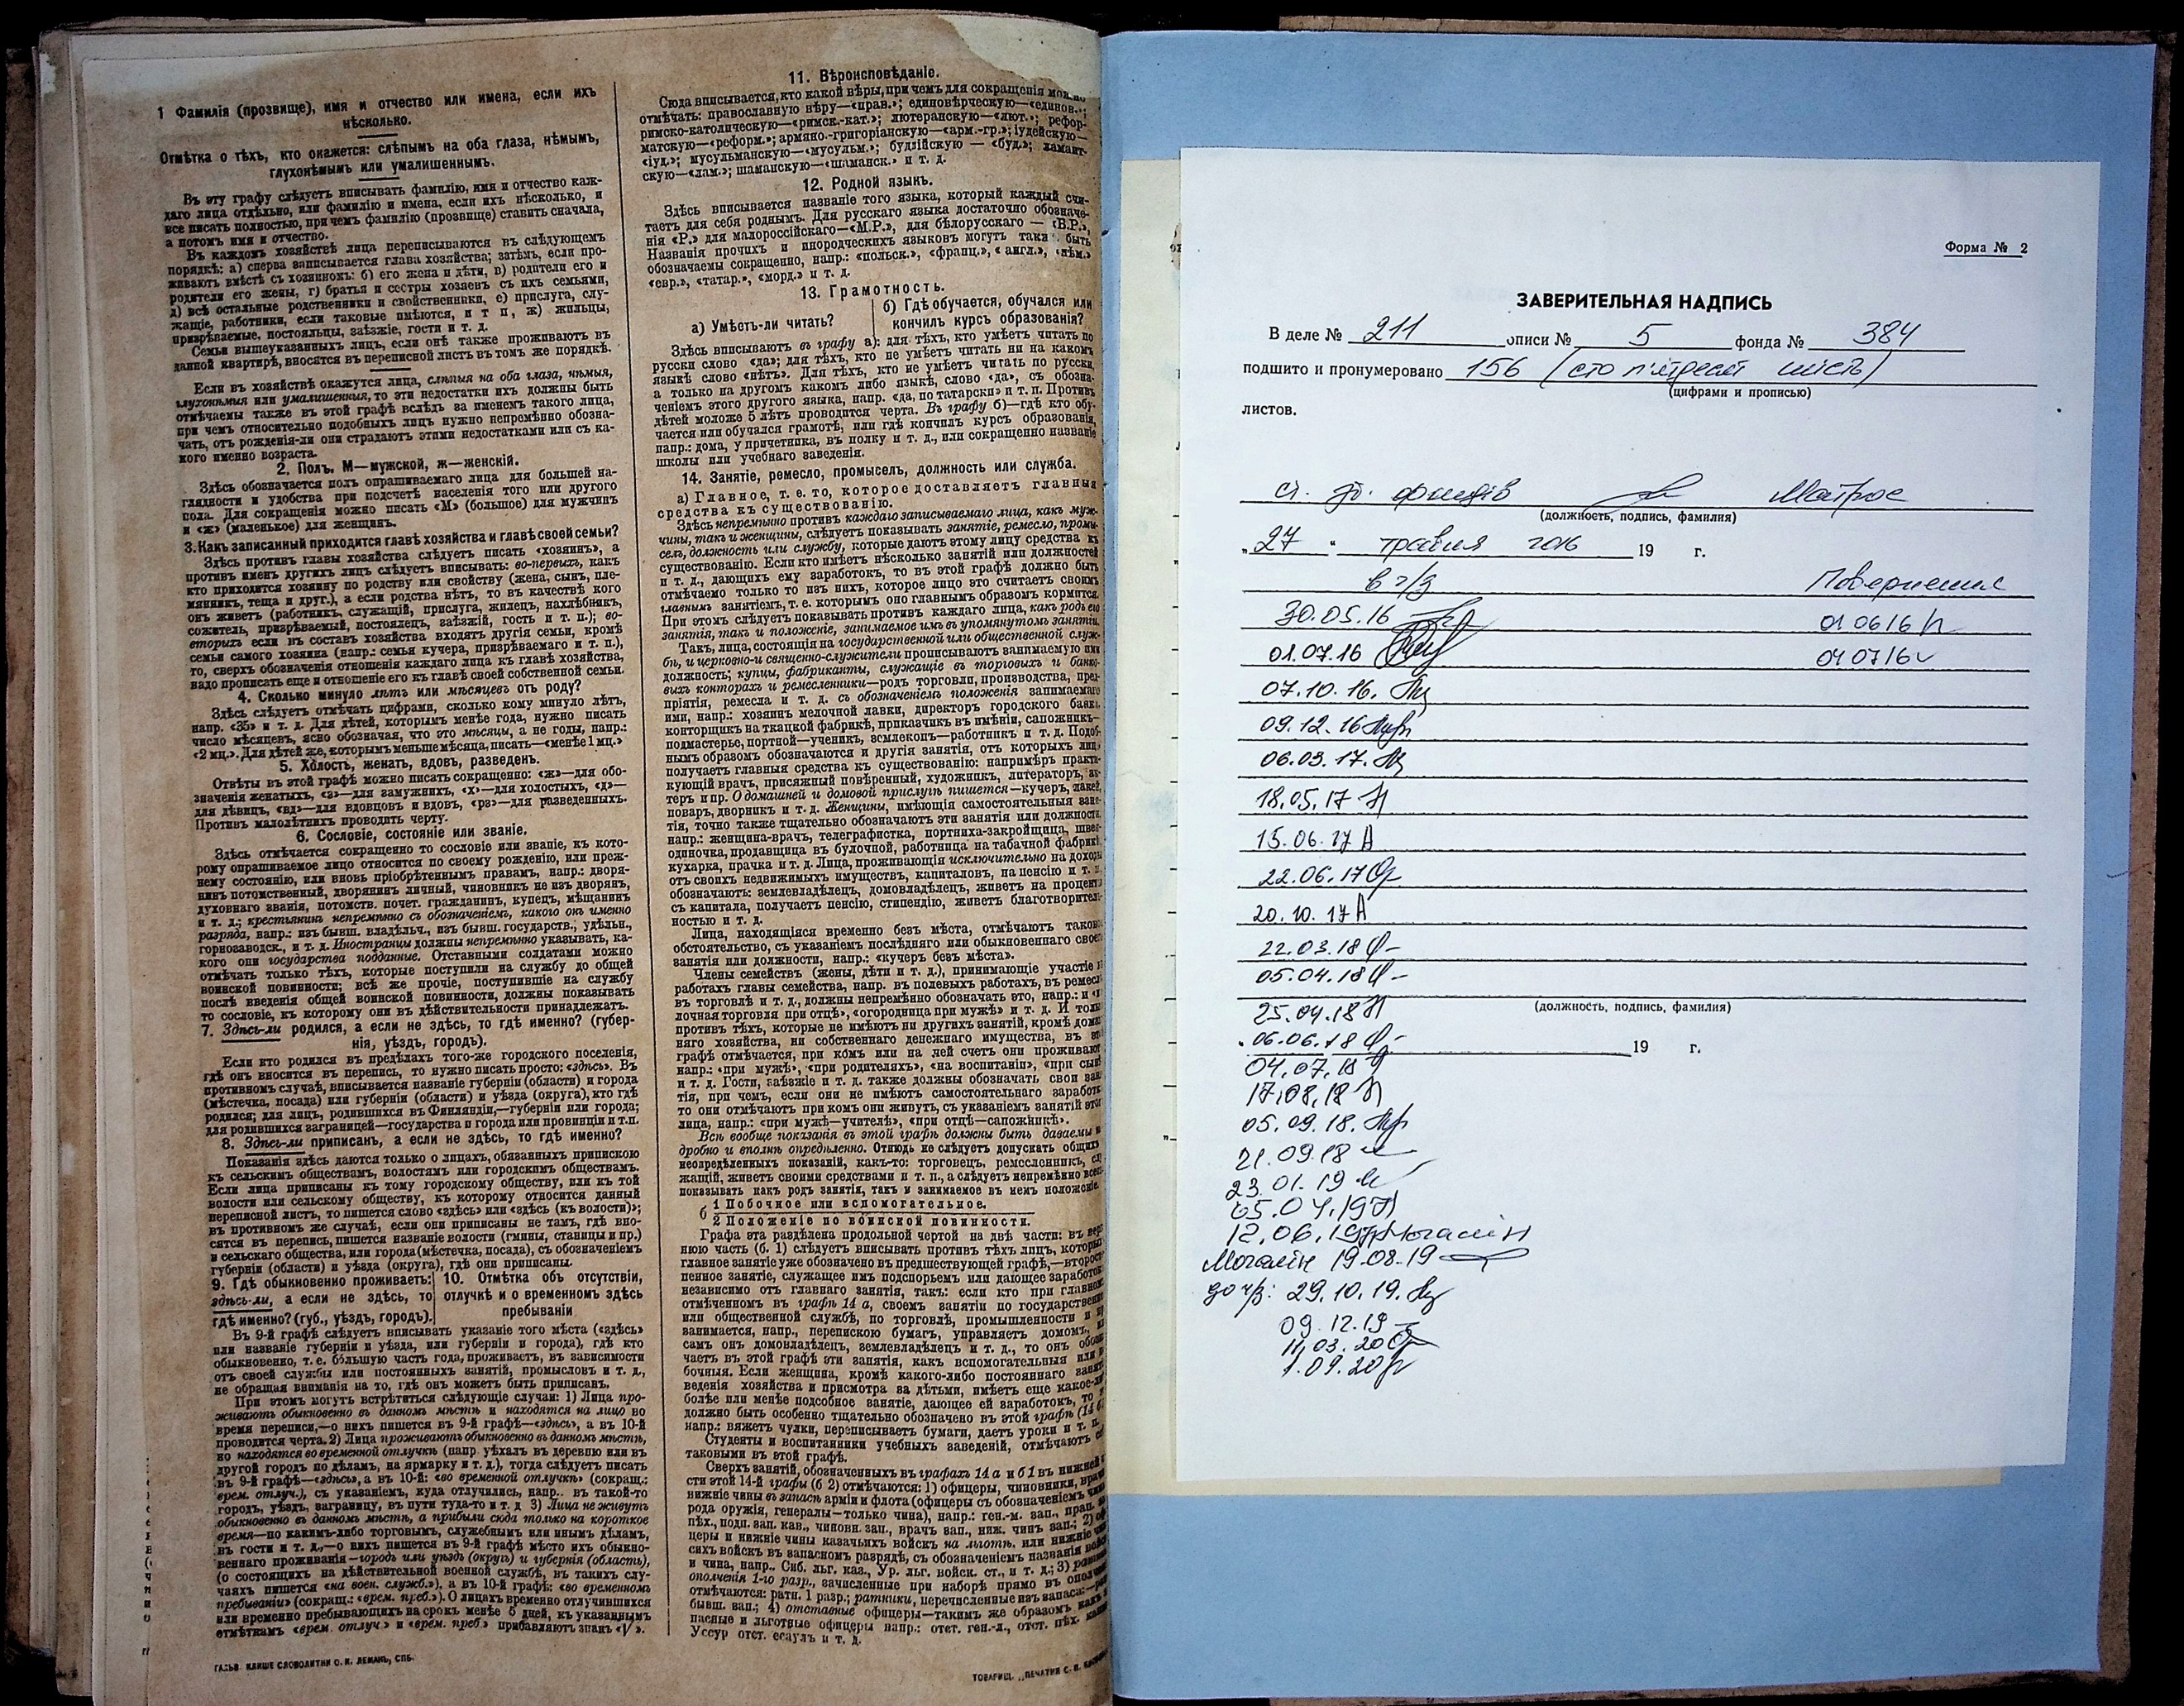 1 Фамилія (прозвище), имя и отчество или имена, если ихъ
нѣсколько.
Отмѣтка о тѣхъ, кто окажется: слѣпымъ на оба глаза, нѣмымъ,
глухонѣмымъ или умалишеннымъ.
Въ эту графу слѣдуетъ вписывать фамилію, имя и отчество каж-
даго лица отдѣльно, или фамилію и имена, если ихъ нѣсколько, и
все писать полностью, при чемъ фамилію (прозвище) ставить сначала,
а потомъ имя и отчество.
Въ каждомъ хозяйствѣ лица переписываются въ слѣдующемъ
порядкѣ: а) сперва записывается глава хозяйства; затѣмъ, если про-
живаютъ вмѣстѣ съ хозяиномъ: б) его жена и дѣти, в) родители его и
родители его жены, г) братья и сестры хозяевъ съ ихъ семьями,
д) всѣ остальные родственники и свойственники, е) прислуга, слу-
жащіе, работники, если таковые имѣются, и т п, ж) жильцы,
призрѣваемые, постояльцы, заѣзжіе, гости и т. д.
Семьи вышеуказанныхъ лицъ, если онѣ также проживаютъ въ
данной квартирѣ, вносятся въ переписной листъ въ томъ же порядкѣ.
Если въ хозяйствѣ окажутся лица, слѣпыя на оба глаза, нѣмыя,
глухонѣмыя или умалишенныя, то эти недостатки ихъ должны быть
отмѣчаемы также въ этой графѣ вслѣдъ за именемъ такого лица,
при чемъ относительно подобныхъ лицъ нужно непремѣнно обозна-
чать, отъ рожденія-ли они страдаютъ этими недостатками или съ ка-
кого именно возраста.
2. Полъ. М—мужской, ж—женскій.
Здѣсь обозначается полъ опрашиваемаго лица для большей на-
глядности и удобства при подсчетѣ населенія того или другого
пола. Для сокращенія можно писать «М» (большое) для мужчинъ
и «ж» (маленькое) для женщинъ.
3. Какъ записанный приходится главѣ хозяйства и главѣ своей семьи?
Здѣсь противъ главы хозяйства слѣдуетъ писать «хозяинъ», а
противъ именъ другихъ лицъ слѣдуетъ вписывать: во-первыхъ, какъ
кто приходится хозяину по родству или свойству (жена, сынъ, пле-
мянникъ, теща и друг.), а если родства нѣтъ, то въ качествѣ кого
онъ живетъ (работникъ, служащій, прислуга, жилецъ, нахлѣбникъ,
сожитель, призрѣваемый, постоялецъ, заѣзжій, гость и т. п.); во-
вторыхъ если въ составъ хозяйства входятъ другія семьи, кромѣ
семьи самого хозяина (напр.: семья кучера, призрѣваемаго и т. п.),
то, сверхъ обозначенія отношенія каждаго лица къ главѣ хозяйства,
надо прописать еще и отношеніе его къ главѣ своей собственной семьи.
4. Сколько минуло лѣтъ или мѣсяцевъ отъ роду?
Здѣсь слѣдуетъ отмѣчать цифрами, сколько кому минуло лѣтъ,
напр. «35» и т. д. Для дѣтей, которымъ менѣе года, нужно писать
число мѣсяцевъ, ясно обозначая, что это мѣсяцы, а не годы, напр.:
«2 мц.». Для дѣтей же, которымъ меньше мѣсяца, писать—«менѣе 1 мц.»
5. Холостъ, женатъ, вдовъ, разведенъ.
Отвѣты въ этой графѣ можно писать сокращенно: «ж»—для обо-
значенія женатыхъ, «з»—для замужнихъ, «х»—для холостыхъ, «д»—
для дѣвицъ, «вд»—для вдовцовъ и вдовъ, «рз»—для разведенныхъ.
Противъ малолѣтнихъ проводить черту.
6. Сословіе, состояніе или званіе.
Здѣсь отмѣчается сокращенно то сословіе или званіе, къ кото-
рому опрашиваемое лицо относится по своему рожденію, или преж-
нему состоянію, или вновь пріобрѣтеннымъ правамъ, напр.: дворя-
нинъ потомственный, дворянинъ личный, чиновникъ не изъ дворянъ,
духовнаго званія, потомств. почет. гражданинъ, купецъ, мѣщанинъ
и т. д.; крестьянинъ непремѣнно съ обозначеніемъ, какого онъ именно
разряда, напр.: изъ бывш. владѣльч., изъ бывш. государств., удѣльн.,
горнозаводск., и т. д. Иностранцы должны непремѣнно указывать, ка-
кого они государства подданные. Отставными солдатами можно
отмѣчать только тѣхъ, которые поступили на службу до общей
воинской повинности; всѣ же прочіе, поступившіе на службу
послѣ введенія общей воинской повинности, должны показывать
то сословіе, къ которому они въ дѣйствительности принадлежатъ.
7. Здѣсь-ли родился, а если не здѣсь, то гдѣ именно? (губер-
нія, уѣздъ, городъ).
Если кто родился въ предѣлахъ того-же городского поселенія,
гдѣ онъ вносится въ перепись, то нужно писать просто: «здѣсь». Въ
противномъ случаѣ, вписывается названіе губерніи (области) и города
(мѣстечка, посада) или губерніи (области) и уѣзда (округа), кто гдѣ
родился; для лицъ, родившихся въ Финляндіи,—губерніи или города;
для родившихся заграницей—государства и города или провинціи и т.п.
8. Здѣсь-ли приписанъ, а если не здѣсь, то гдѣ именно?
Показанія здѣсь даются только о лицахъ, обязанныхъ припискою
къ сельскимъ обществамъ, волостямъ или городскимъ обществамъ.
Если лица приписаны къ тому городскому обществу, или къ той
волости или сельскому обществу, къ которому относится данный
переписной листъ, то пишется слово «здѣсь» или «здѣсь (къ волости)»;
въ противномъ же случаѣ, если они приписаны не тамъ, гдѣ вно-
сятся въ перепись, пишется названіе волости (гмины, станицы и пр.)
и сельскаго общества, или города (мѣстечка, посада), съ обозначеніемъ
губерніи (области) и уѣзда (округа), гдѣ они приписаны.
9. Гдѣ обыкновенно проживаетъ:
здѣсь-ли, а если не здѣсь, то
гдѣ именно? (губ., уѣздъ, городъ).
10. Отмѣтка объ отсутствіи,
отлучкѣ и о временномъ здѣсь
пребываніи
Въ 9-й графѣ слѣдуетъ вписывать указаніе того мѣста («здѣсь»
или названіе губерніи и уѣзда, или губерніи и города), гдѣ кто
обыкновенно, т. е. бо́льшую часть года, проживаетъ, въ зависимости
отъ своей службы или постоянныхъ занятій, промысловъ и т. д.,
не обращая вниманія на то, гдѣ онъ можетъ быть приписанъ.
При этомъ могутъ встрѣтиться слѣдующіе случаи: 1) Лица про-
живаютъ обыкновенно въ данномъ мѣстѣ и находятся на лицо во
время переписи,—о нихъ пишется въ 9-й графѣ—«здѣсь», а въ 10-й
проводится черта. 2) Лица проживаютъ обыкновенно въ данномъ мѣстѣ,
но находятся во временной отлучкѣ (напр уѣхалъ въ деревню или въ
другой городъ по дѣламъ, на ярмарку и т. д.), тогда слѣдуетъ писать
въ 9-й графѣ—«здѣсь», а въ 10-й: «во временной отлучкѣ» (сокращ.:
врем. отлуч.), съ указаніемъ, куда отлучились, напр.. въ такой-то
городъ, уѣздъ, заграницу, въ пути туда-то и т. д 3) Лица не живутъ
обыкновенно въ данномъ мѣстѣ, а прибыли сюда только на короткое
время—по какимъ-либо торговымъ, служебнымъ или инымъ дѣламъ,
въ гости и т. д.,—о нихъ пишется въ 9-й графѣ мѣсто ихъ обыкно-
веннаго проживанія—городъ или уѣздъ (округъ) и губернія (область),
(о состоящихъ на дѣйствительной военной службѣ, въ такихъ слу-
чаяхъ пишется «на воен. служб.»), а въ 10-й графѣ: «во временномъ
пребываніи» (сокращ.: «врем. преб.»). О лицахъ временно отлучившихся
или временно пребывающихъ на срокъ менѣе 5 дней, къ указаннымъ
отмѣткамъ «врем. отлуч» и «врем. преб» прибавляютъ знакъ «V».
ГАЛЬВ. КЛИШЕ СЛОВОЛИТНИ О. И. ЛЕМАНЪ, СПБ.
11. Вѣроисповѣданіе.
Сюда вписывается, кто какой вѣры, при чемъ для сокращенія можно
отмѣчать: православную вѣру—«прав.»; единовѣрческую—«единов.»;
римско-католическую—«римск.-кат.»; лютеранскую—«лют.»; рефор-
матскую—«реформ.»; армяно.-григоріанскую—«арм.-гр.»; іудейскую—
«іуд.»; мусульманскую—«мусульм.»; буддійскую — «буд.»; ламаит-
скую—«лам.»; шаманскую—«шаманск.» и т. д.
12. Родной языкъ.
Здѣсь вписывается названіе того языка, который каждый счи-
таетъ для себя роднымъ. Для русскаго языка достаточно обозначе-
нія «Р.» для малороссійскаго—«М.Р.», для бѣлорусскаго — «Б.Р.»,
Названія прочихъ и инородческихъ языковъ могутъ также быть
обозначаемы сокращенно, напр.: «польск.», «франц.», «англ.», «нѣм.»
«евр.», «татар.», «морд.» и т. д.
13. Грамотность.
а) Умѣетъ-ли читать?
б) Гдѣ обучается, обучался или
кончилъ курсъ образованія?
Здѣсь вписываютъ въ графу а): для тѣхъ, кто умѣетъ читать по
русски слово «да»; для тѣхъ, кто не умѣетъ читать ни на какомъ
языкѣ слово «нѣтъ». Для тѣхъ, кто не умѣетъ читать по русски,
а только на другомъ какомъ либо языкѣ, слово «да», съ обозна-
ченіемъ этого другого языка, напр. «да, по татарски» и т. п. Противъ
дѣтей моложе 5 лѣтъ проводится черта. Въ графу б)—гдѣ кто обу-
чается или обучался грамотѣ, или гдѣ кончилъ курсъ образованія,
напр.: дома, у причетника, въ полку и т. д., или сокращенно названіе
школы или учебнаго заведенія.
14. Занятіе, ремесло, промыселъ, должность или служба.
а) Главное, т. е. то, которое доставляетъ главныя
средства къ существованію.
Здѣсь непремѣнно противъ каждаго записываемаго лица, какъ муж-
чины, такъ и женщины, слѣдуетъ показывать занятіе, ремесло, промы-
селъ, должность или службу, которые даютъ этому лицу средства къ
существованію. Если кто имѣетъ нѣсколько занятій или должностей
и т. д., дающихъ ему заработокъ, то въ этой графѣ должно быть
отмѣчаемо только то изъ нихъ, которое лицо это считаетъ своимъ
главнымъ занятіемъ, т. е. которымъ оно главнымъ образомъ кормится.
При этомъ слѣдуетъ показывать противъ каждаго лица, какъ родъ его
занятія, такъ и положеніе, занимаемое имъ въ упомянутомъ занятіи.
Такъ, лица, состоящія на государственной или общественной служ-
бѣ, и церковно-и священно-служители прописываютъ занимаемую ими
должность; купцы, фабриканты, служащіе въ торговыхъ и банко-
выхъ конторахъ и ремесленники—родъ торговли, производства, пред-
пріятія, ремесла и т. д. съ обозначеніемъ положенія занимаемаго
ими, напр.: хозяинъ мелочной лавки, директоръ городского банка,
конторщикъ на ткацкой фабрикѣ, приказчикъ въ имѣніи, сапожникъ—
подмастерье, портной—ученикъ, землекопъ—работникъ и т. д. Подоб-
нымъ образомъ обозначаются и другія занятія, отъ которыхъ лицо
получаетъ главныя средства къ существованію: напримѣръ практи-
кующій врачъ, присяжный повѣренный, художникъ, литераторъ, ак-
теръ и пр. О домашней и домовой прислугѣ пишется—кучеръ, лакей,
поваръ, дворникъ и т. д. Женщины, имѣющія самостоятельныя заня-
тія, точно также тщательно обозначаютъ эти занятія или должности,
напр.: женщина-врачъ, телеграфистка, портниха-закройщица, швея-
одиночка, продавщица въ булочной, работница на табачной фабрикѣ,
кухарка, прачка и т. д. Лица, проживающія исключительно на доходы
отъ своихъ недвижимыхъ имуществъ, капиталовъ, на пенсію и т. п.
обозначаютъ: землевладѣлецъ, домовладѣлецъ, живетъ на проценты
съ капитала, получаетъ пенсію, стипендію, живетъ благотворитель-
ностью и т. д.
Лица, находящіяся временно безъ мѣста, отмѣчаютъ таковое
обстоятельство, съ указаніемъ послѣдняго или обыкновеннаго своего
занятія или должности, напр.: «кучеръ безъ мѣста».
Члены семействъ (жены, дѣти и т. д.), принимающіе участіе въ
работахъ главы семейства, напр. въ полевыхъ работахъ, въ ремеслѣ
въ торговлѣ и т. д., должны непремѣнно обозначать это, напр.: «ме-
лочная торговля при отцѣ», «огородница при мужѣ» и т. д. И только
противъ тѣхъ, которые не имѣютъ ни другихъ занятій, кромѣ домаш-
няго хозяйства, ни собственнаго денежнаго имущества, въ этой
графѣ отмѣчается, при комъ или на чей счетъ они проживаютъ
напр.: «при мужѣ», «при родителяхъ», «на воспитаніи», «при сынѣ»
и т. д. Гости, заѣзжіе и т. д. также должны обозначать свои заня-
тія, при чемъ, если они не имѣютъ самостоятельнаго заработка
то они отмѣчаютъ при комъ они живутъ, съ указаніемъ занятій этого
лица, напр.: «при мужѣ—учителѣ», «при отцѣ—сапожникѣ».
Всѣ вообще показанія въ этой графѣ должны быть даваемы по-
дробно и вполнѣ опредѣленно. Отнюдь не слѣдуетъ допускать общихъ
неопредѣленныхъ показаній, какъ-то: торговецъ, ремесленникъ, слу-
жащій, живетъ своими средствами и т. п., а слѣдуетъ непремѣнно всегда
показывать какъ родъ занятія, такъ и занимаемое въ немъ положеніе.
б 1 Побочное или вспомогательное.
2 Положеніе по воинской повинности.
Графа эта раздѣлена продольной чертой на двѣ части: въ верх-
нюю часть (б. 1) слѣдуетъ вписывать противъ тѣхъ лицъ, которыхъ
главное занятіе уже обозначено въ предшествующей графѣ,—второсте-
пенное занятіе, служащее имъ подспорьемъ или дающее заработокъ
независимо отъ главнаго занятія, такъ: если кто при главномъ
отмѣченномъ въ графѣ 14 а, своемъ занятіи по государственной
или общественной службѣ, по торговлѣ, промышленности и пр.
занимается, напр., перепискою бумагъ, управляетъ домомъ, или
самъ онъ домовладѣлецъ, землевладѣлецъ и т. д., то онъ обозна-
чаетъ въ этой графѣ эти занятія, какъ вспомогательныя или по-
бочныя. Если женщина, кромѣ какого-либо постояннаго занятія
веденія хозяйства и присмотра за дѣтьми, имѣетъ еще какое-либо
болѣе или менѣе подсобное занятіе, дающее ей заработокъ, то это
должно быть особенно тщательно обозначено въ этой графѣ (14 б)
напр.: вяжетъ чулки, переписываетъ бумаги, даетъ уроки и т. п.
Студенты и воспитанники учебныхъ заведеній, отмѣчаютъ себя
таковыми въ этой графѣ.
Сверхъ занятій, обозначенныхъ въ графахъ 14 а и б 1 въ нижней ча-
сти этой 14-й графы (б 2) отмѣчаются: 1) офицеры, чиновники, врачи
нижніе чины въ запасѣ арміи и флота (офицеры съ обозначеніемъ чина
рода оружія, генералы—только чина), напр.: ген.-м. зап., прап. зап.
пѣх., подп. зап. кав., чиновн. зап., врачъ зап., ниж. чинъ зап.; 2) офи-
церы и нижніе чины казачьихъ войскъ на льготѣ, или нижніе чины
сихъ войскъ въ запасномъ разрядѣ, съ обозначеніемъ названія войска
и чина, напр.. Сиб. льг. каз., Ур. льг. войск. ст., и т. д.; 3) ратники
ополченія 1-го разр., зачисленные при наборѣ прямо въ ополченіе
отмѣчаются: ратн. 1 разр.; ратники, перечисленные изъ запаса:—ратн.
бывш. зап.; 4) отставные офицеры—такимъ же образомъ какъ за-
пасные и льготные офицеры напр.: отст. ген.-л., отст. пѣх. капит.
Уссур отст. есаулъ и т. д.
ТОВАРИЩ. „ПЕЧАТНИ С. П.
Форма № 2
ЗАВЕРИТЕЛЬНАЯ НАДПИСЬ
В деле № 211 описи № 5 фонда № 384
подшито и пронумеровано 156 (сто п'ятдесят шість)
(цифрами и прописью)
листов.
ст. зб. фондів Матрос
(должность, подпись, фамилия)
„27“ травня 2016 19 г.
в ч/з Повернення
30.05.16 01 06 16
01.07.16 04 07 16
07.10.16.
09.12.16
06.03.17.
18.05.17
15.06.17
22.06.17
20.10.17
22.03.18
05.04.18
25.04.18
(должность, подпись, фамилия)
06.06.18
19 г.
04.07.18
17.08.18
05.09.18.
21.09.18
23.01.19
05.04.19
12.06.19
19.08.19
до ч/з: 29.10.19.
09.12.19
11.03.20
1.09.20